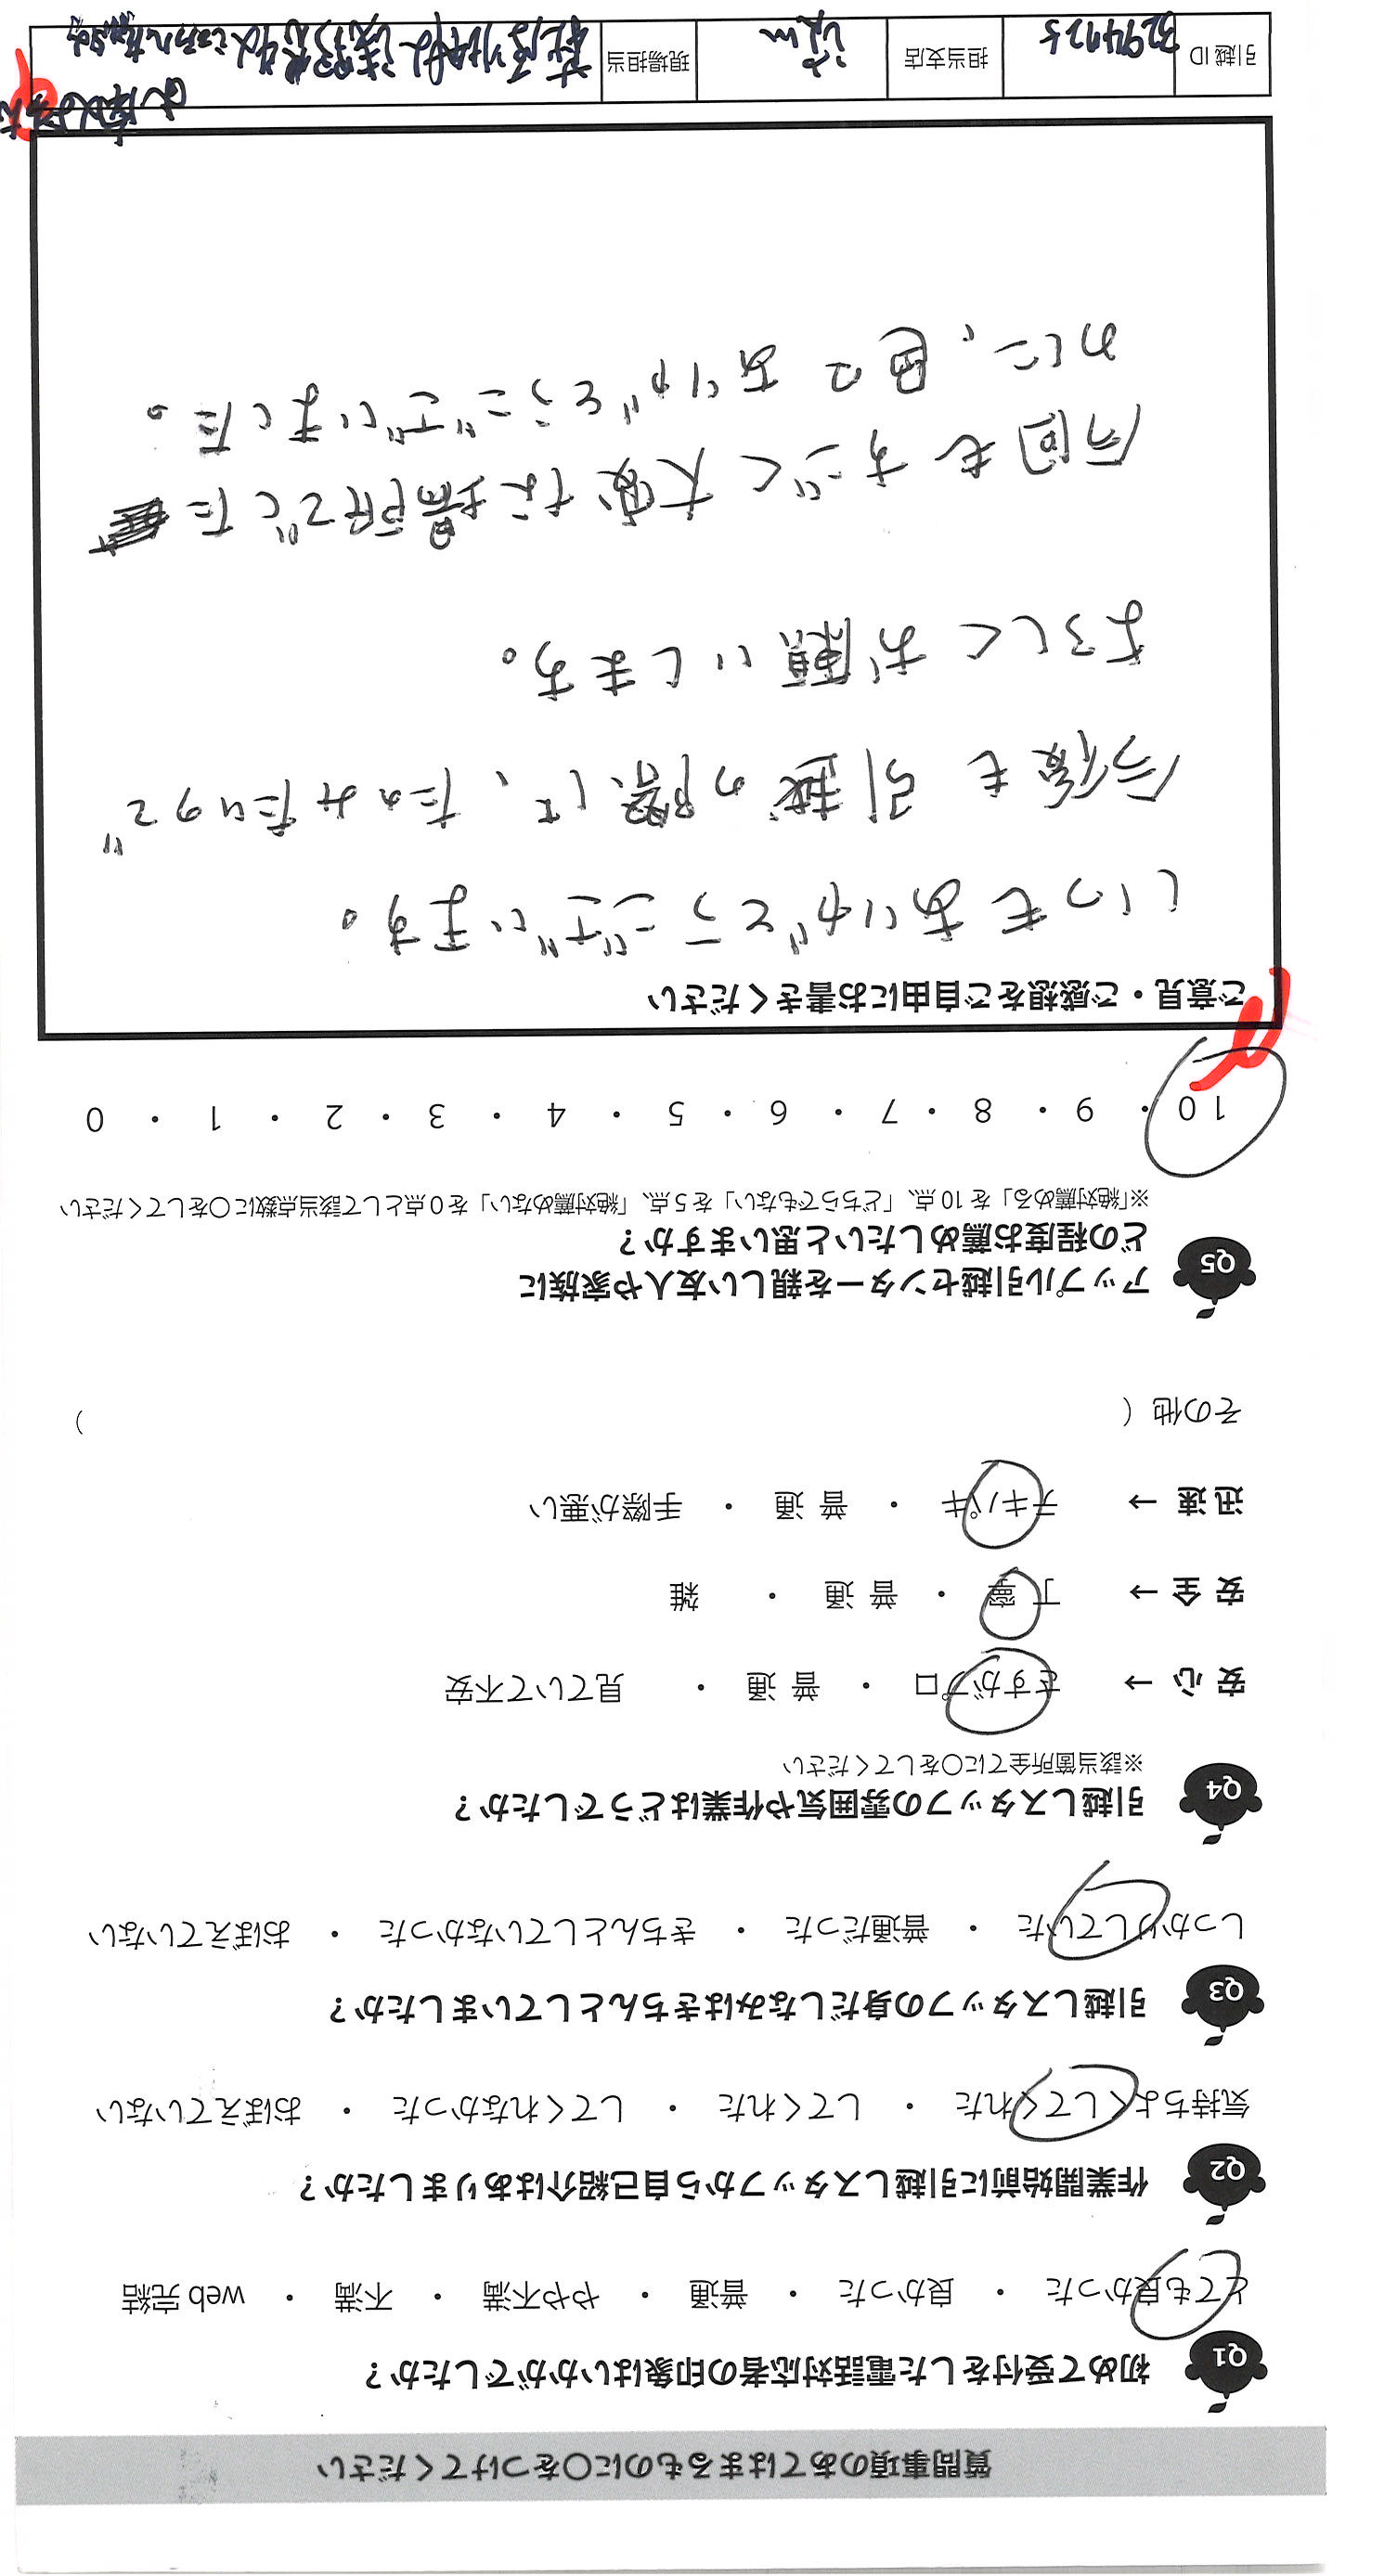 質問事項のあてはまるものに〇をつけてください
Q1 初めて受付をした電話対応者の印象はいかがでしたか?
とても良かった ・ 良かった ・ 普通 ・ やや不満 ・ 不満 ・ web 完結
Q2 作業開始前に引越しスタッフから自己紹介はありましたか?
気持ちよくしてくれた ・ してくれた ・ してくれなかった ・ おぼえていない
Q3 引越しスタッフの身だしなみはきちんとしていましたか?
しっかりしていた ・ 普通だった ・ きちんとしていなかった ・ おぼえていない
Q4 引越しスタッフの雰囲気や作業はどうでしたか?
※該当箇所全てに〇をしてください
安心 → さすがプロ ・ 普通 ・ 見ていて不安
安全 → 丁寧 ・ 普通 ・ 雑
迅速 → テキパキ ・ 普通 ・ 手際が悪い
その他 ( )
Q5 アップル引越センターを親しい友人や家族に
どの程度お薦めしたいと思いますか?
※「絶対薦める」を 10 点、「どちらでもない」を 5 点、「絶対薦めない」を 0 点として該当点数に〇をしてください
10 ・ 9 ・ 8 ・ 7 ・ 6 ・ 5 ・ 4 ・ 3 ・ 2 ・ 1 ・ 0
ご意見・ご感想をご自由にお書きください
いつもありがとうございます。
今後も引越の際して、たのみたいので
よろしくお願いします。
今回もすごく大変な場所でした
のに、色々ありがとうございました。
引越 ID 3294725 担当支店 現場担当